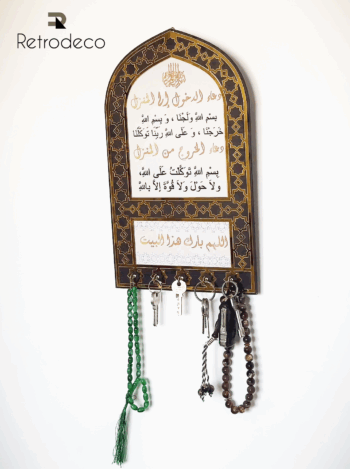 Retrodeco
دعاء الدخول إلى المنزل
بِسْمِ اللَّهِ وَلَجْنَا ، وَ بِسْمِ اللَّهِ
خَرَجْنَا ، وَ عَلَى اللَّهِ رَبِّنَا تَوَكَّلْنَا
دعاء الخروج من المنزل
بِسْمِ اللَّهِ تَوَكَّلْتُ عَلَى اللَّهِ،
ولا حَوْلَ وَلَا قُوَّةَ إِلَّا بِاللَّهِ
اللهم بارك هذا البيت